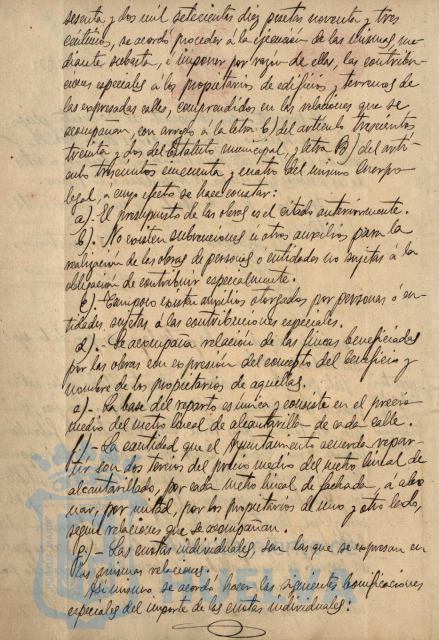 sesenta y dos mil setecientas diez pesetas noventa y tres
céntimos, se acordó proceder á la ejecución de las mismas me-
diante subasta, é imponer por razón de ellas, las contribu-
ciones especiales á los propietarios de edificios y terrenos de
las expresadas calles, comprendidos en las relaciones que se
acompañan, con arreglo á la letra b) del artículo trescientos
treinta y dos del Estatuto municipal, y letra B) del artí-
culo trescientos cincuenta y cuatro del mismo Cuerpo
legal, á cuyo efecto se hace constar:
a). El presupuesto de las obras es el citado anteriormente.
b). No existen subvenciones ú otros auxilios para la
realización de las obras de personas ó entidades no sujetas á la
obligación de contribuir especialmente.
c). Tampoco existen auxilios otorgados por personas ó en-
tidades sujetas á las contribuciones especiales.
d).- Se acompaña relación de las fincas beneficiadas
por las obras con expresión del concepto del beneficio y
nombre de los propietarios de aquellas.
e).- La base del reparto es única y consiste en el precio
medio del metro lineal de alcantarilla de cada calle.
f).- La cantidad que el Ayuntamiento acuerda repar-
tir son dos tercios del precio medio del metro lineal de
alcantarillado, por cada metro lineal de fachada, á abo-
nar, por mitad, por los propietarios de uno y otro lado,
según relaciones que se acompañan.
g).- Las cuotas individuales, son las que se expresan en
las mismas relaciones.
Asimismo, se acordó hacer las siguientes bonificaciones
especiales del importe de las cuotas individuales:
HUELVA